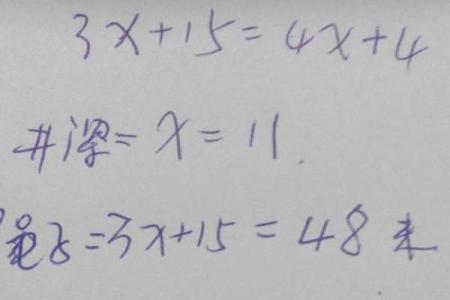 3x+15=4x+4
井深=x=11.
=3x+15=48米